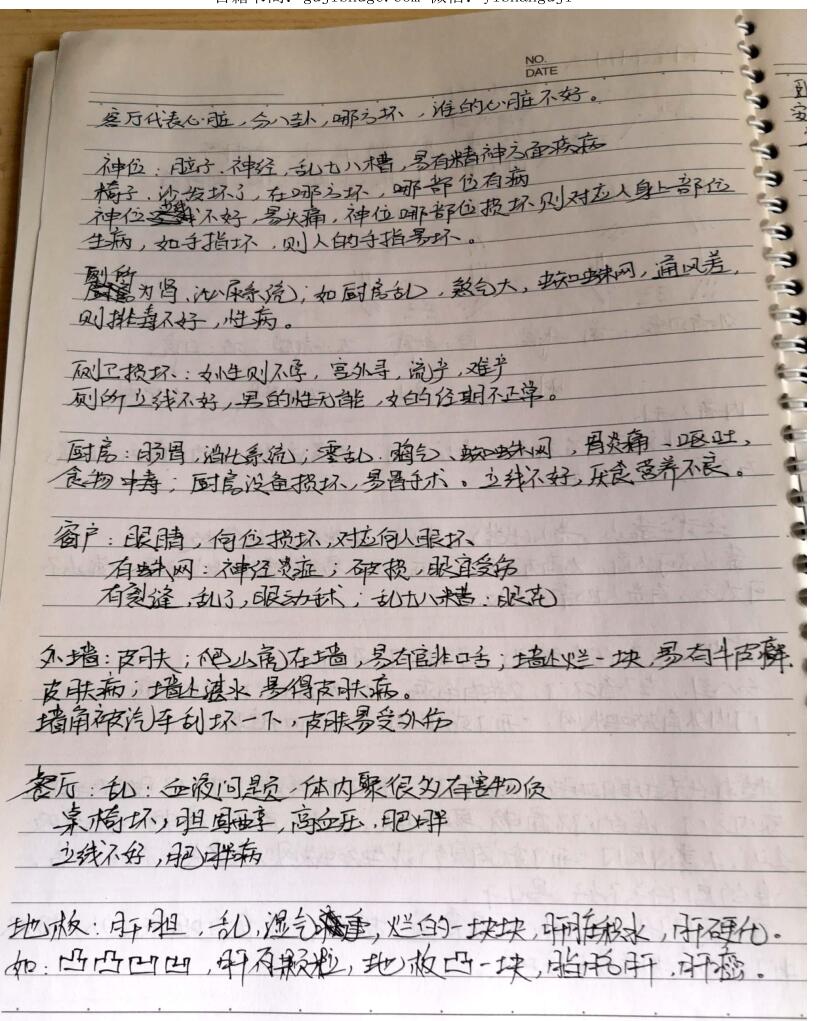 NO.
DATE
客厅代表心脏,分八卦,哪方坏,谁的心脏不好。
神位:脑子.神经,乱七八糟,易有精神方面疾病
椅子.沙发坏了,在哪方坏,哪部位有病
神位不好,易头痛,神位哪部位损坏则对应人身上部位
生病,如手指坏,则人的手指易坏。
厕所
为肾.泌尿系统;如厨房乱,煞气大,蜘蛛网,通风差,
则排毒不好,性病。
厕卫损坏:女性则不孕,宫外孕,流产,难产
厕所立线不好,男的性无能,女的经期不正常。
厨房:肠胃,消化系统;零乱.胸气、蜘蛛网,胃炎痛、呕吐、
食物中毒;厨房设备损坏,易胃手术。立线不好,厌食营养不良。
窗户:眼睛,何位损坏,对应何人眼坏
有蛛网:神经炎症;破损,眼宜受伤
有裂缝,乱了,眼动手术;乱七八糟:眼花
外墙:皮肤;爬山虎在墙,易有官非口舌;墙上烂一块,易有牛皮癣.
皮肤病;墙上湛水易得皮肤病。
墙角被汽车刮坏一下,皮肤易受外伤
餐厅:乱:血液问题,体内聚很多有害物质
桌椅坏,胆固醇,高血压,肥胖
立线不好,肥胖病
地板:肝胆,乱,湿气重,烂的一块块,肝脏积水,肝硬化.
如:凸凸凹凹,肝有颗粒,地板凸一块,脂肪肝,肝癌。